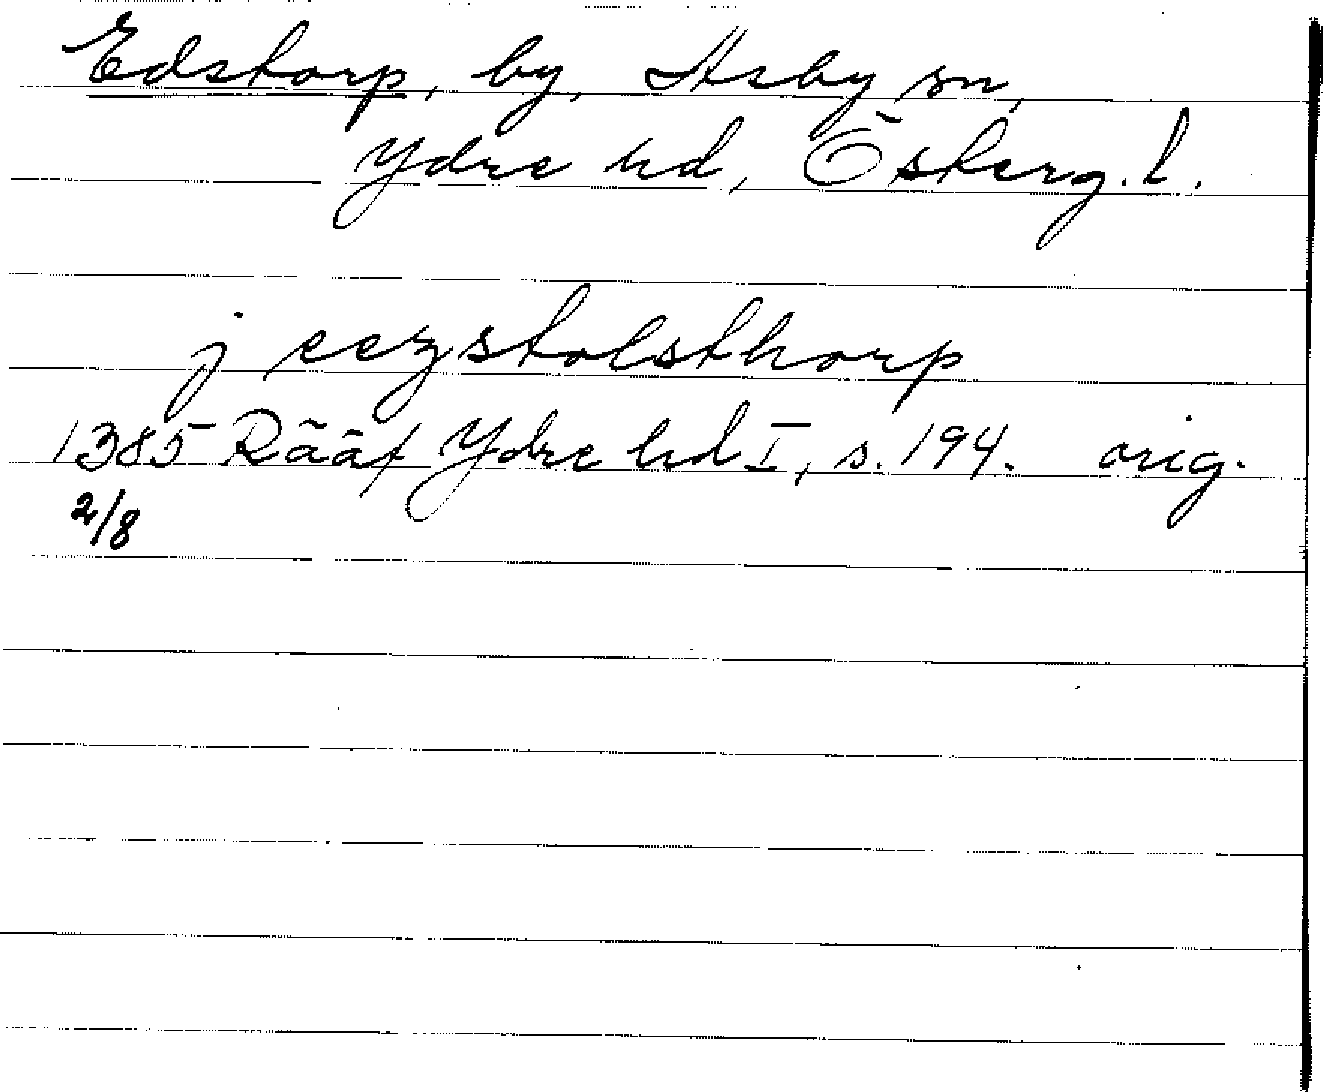 Edstorp, by, Asby sn,
Ydre hd, Österg. l.
j eezstolsthorp
1385 Rääf Ydre hd I, s. 194. orig.
2/8